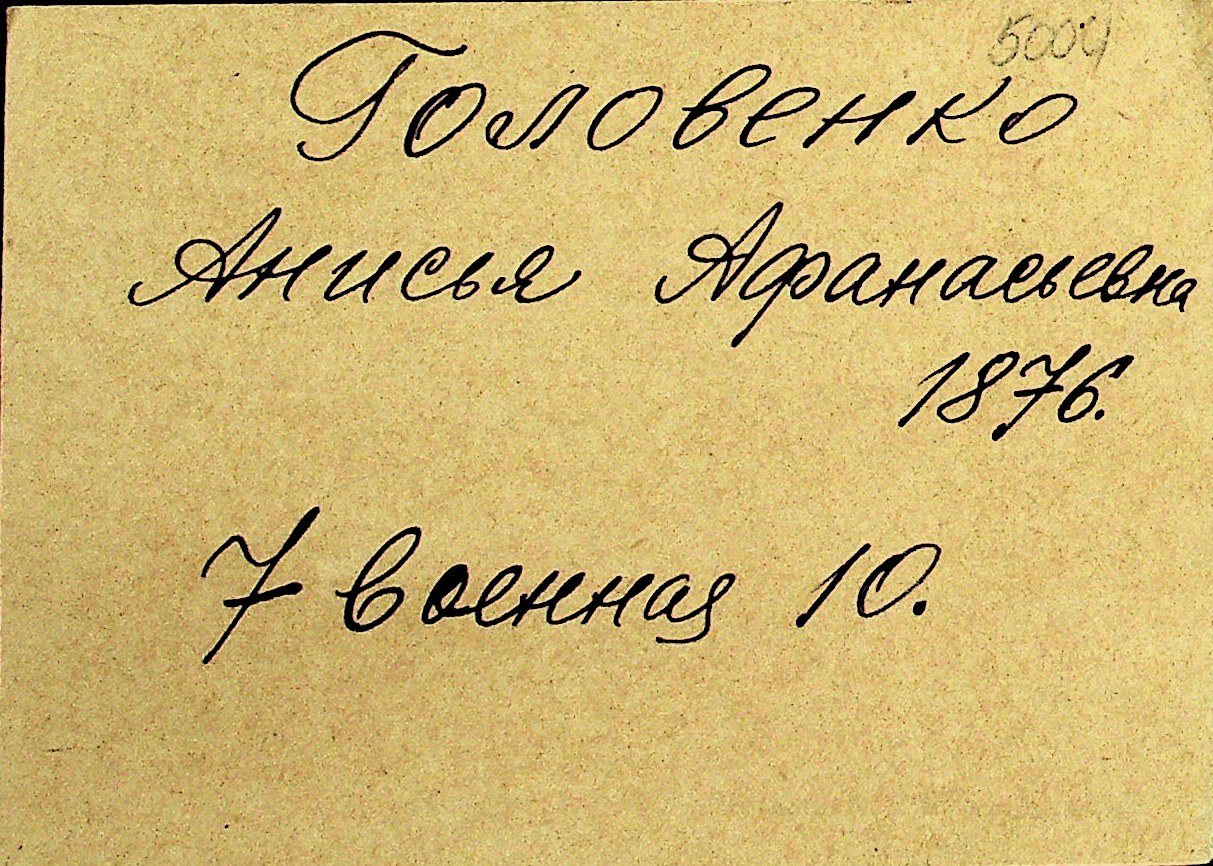 5004
Головенко
Анисья Афанасьевна
1876.
7 военная 10.